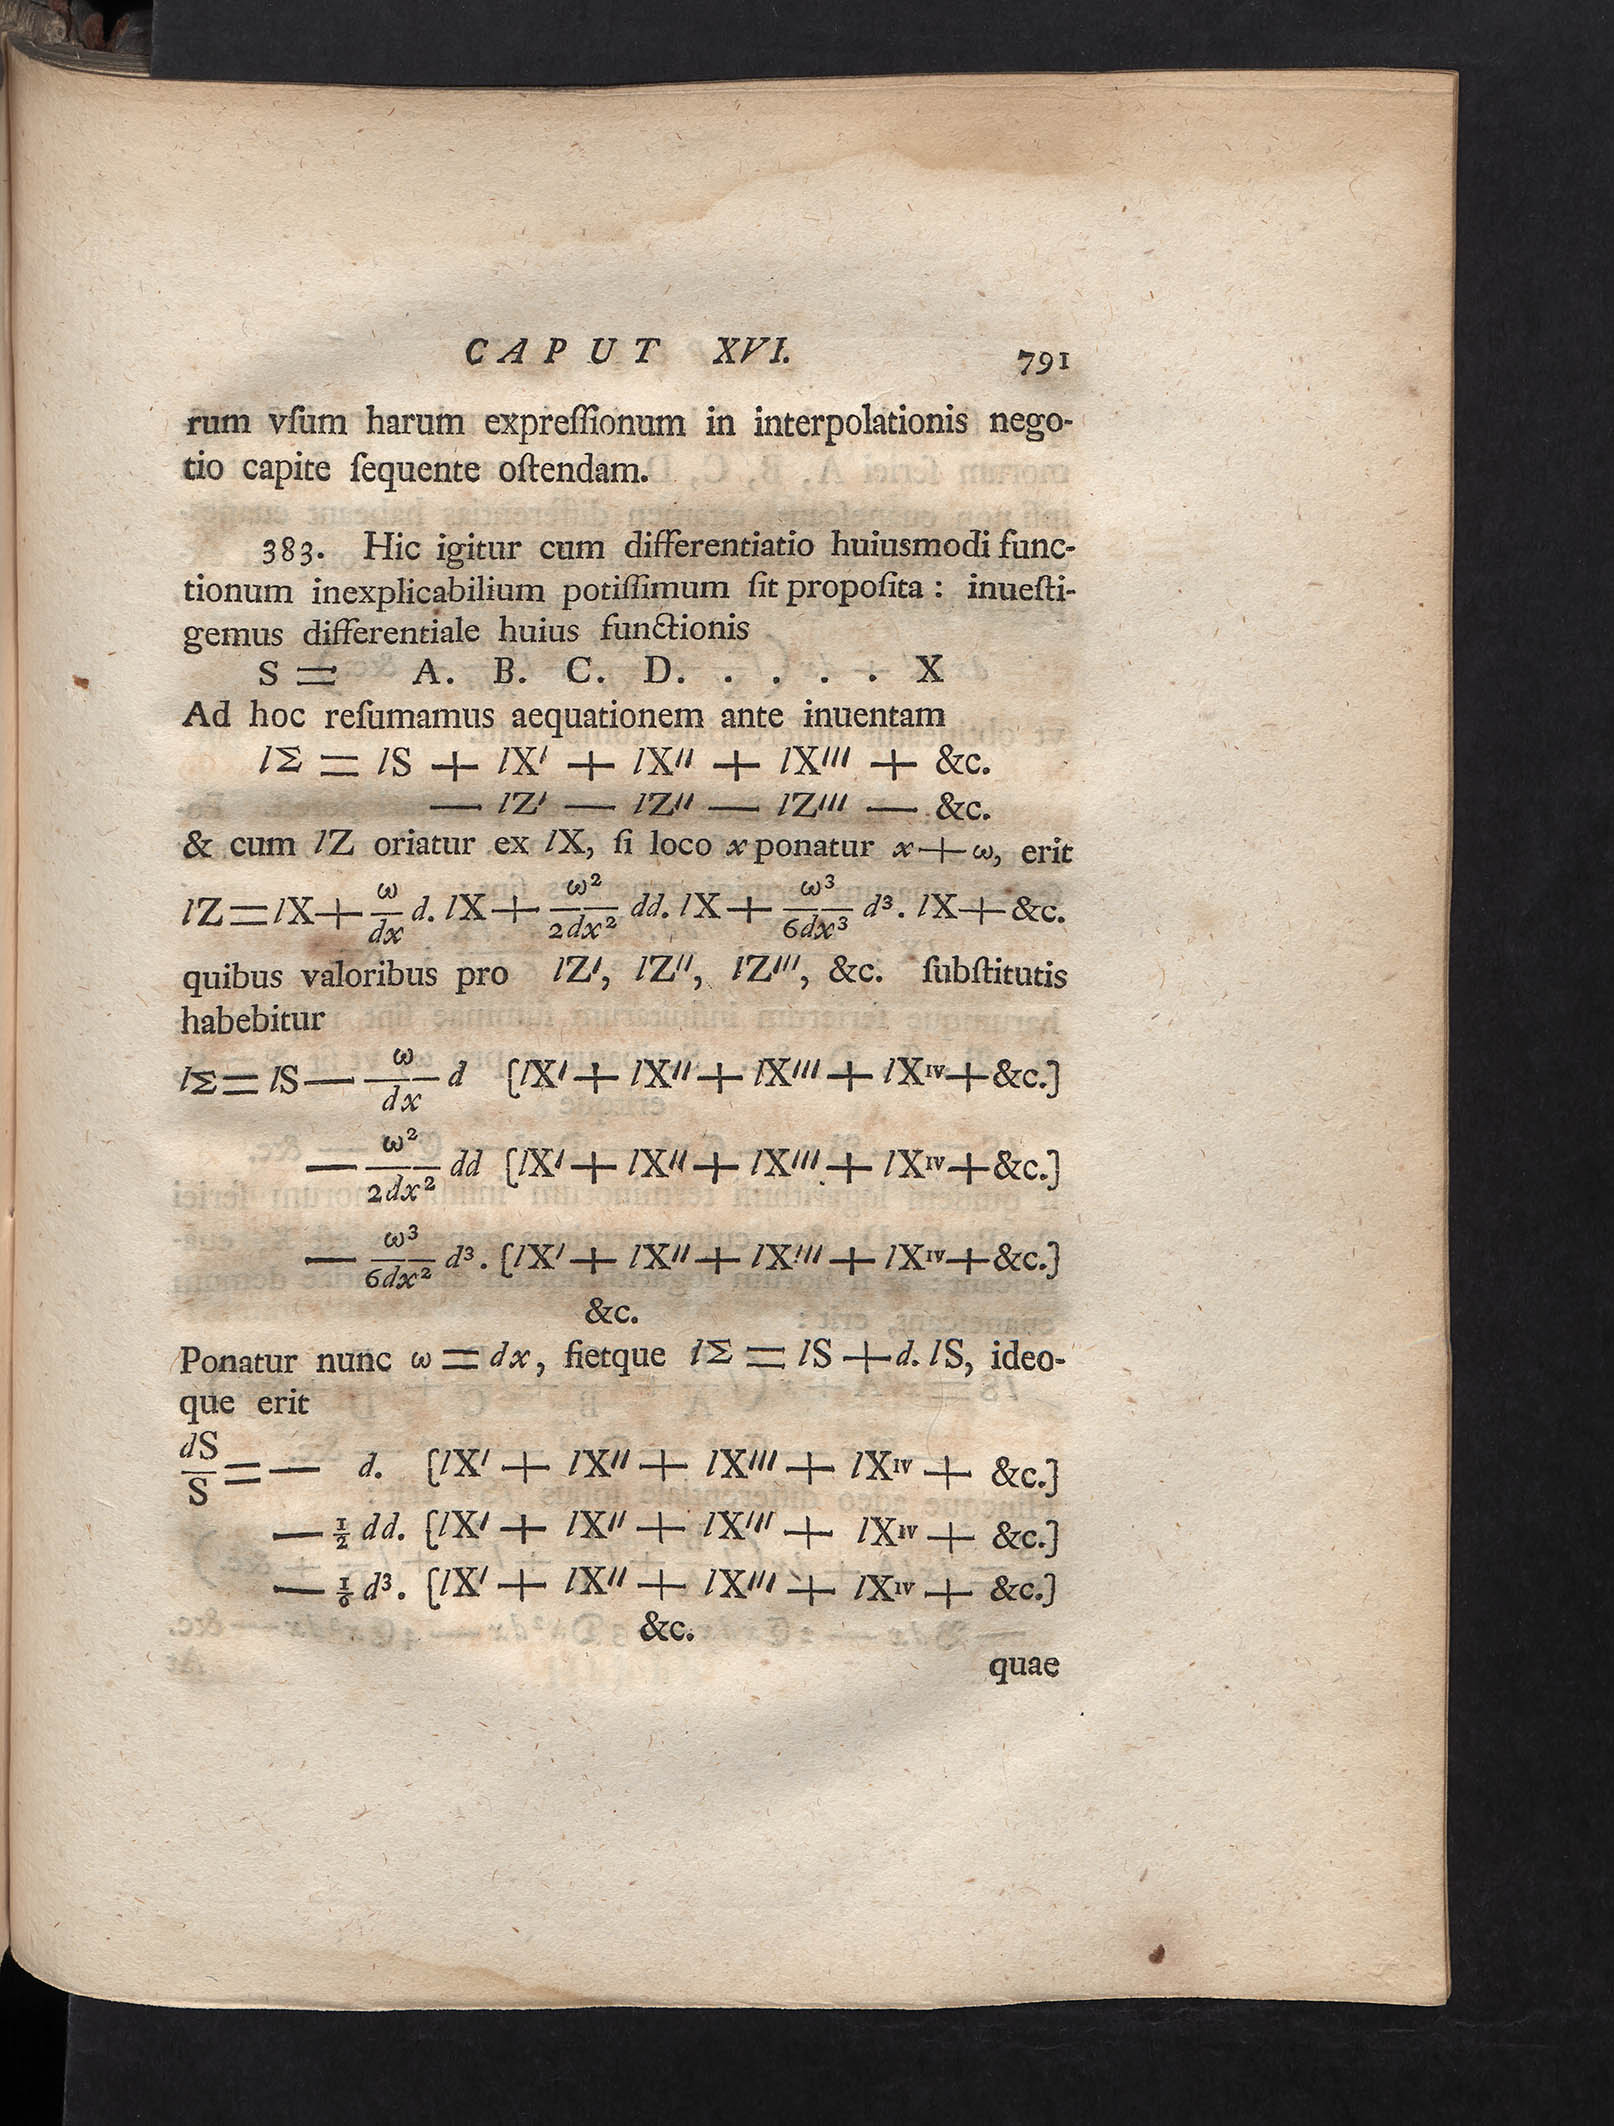 CAPUT XVI. 791
rum vſum harum expreſſionum in interpolationis nego-
tio capite ſequente oſtendam.
383. Hic igitur cum differentiatio huiusmodi func-
tionum inexplicabilium potiſſimum ſit propoſita : inueſti-
gemus differentiale huius functionis
S = A. B. C. D. . . . . X
Ad hoc reſumamus aequationem ante inuentam
lΣ = lS + lX′ + lX′′ + lX′′′ + &c.
— lZ′ — lZ′′ — lZ′′′ — &c.
& cum lZ oriatur ex lX, ſi loco x ponatur x+ω, erit
lZ=lX+ω/dx d. lX+ω²/2dx² dd. lX+ω³/6dx³ d³. lX+&c.
quibus valoribus pro lZ′, lZ′′, lZ′′′, &c. ſubſtitutis
habebitur
lΣ=lS—ω/dx d [lX′+lX′′+lX′′′+lXᴵⱽ+&c.]
—ω²/2dx² dd [lX′+lX′′+lX′′′+lXᴵⱽ+&c.]
—ω³/6dx² d³. [lX′+lX′′+lX′′′+lXᴵⱽ+&c.]
&c.
Ponatur nunc ω=dx, fietque lΣ=lS+d. lS, ideo-
que erit
dS/S=— d. [lX′ + lX′′ + lX′′′ + lXᴵⱽ + &c.]
—½ dd. [lX′ + lX′′ + lX′′′ + lXᴵⱽ + &c.]
—⅙ d³. [lX′ + lX′′ + lX′′′ + lXᴵⱽ + &c.]
&c.
quae